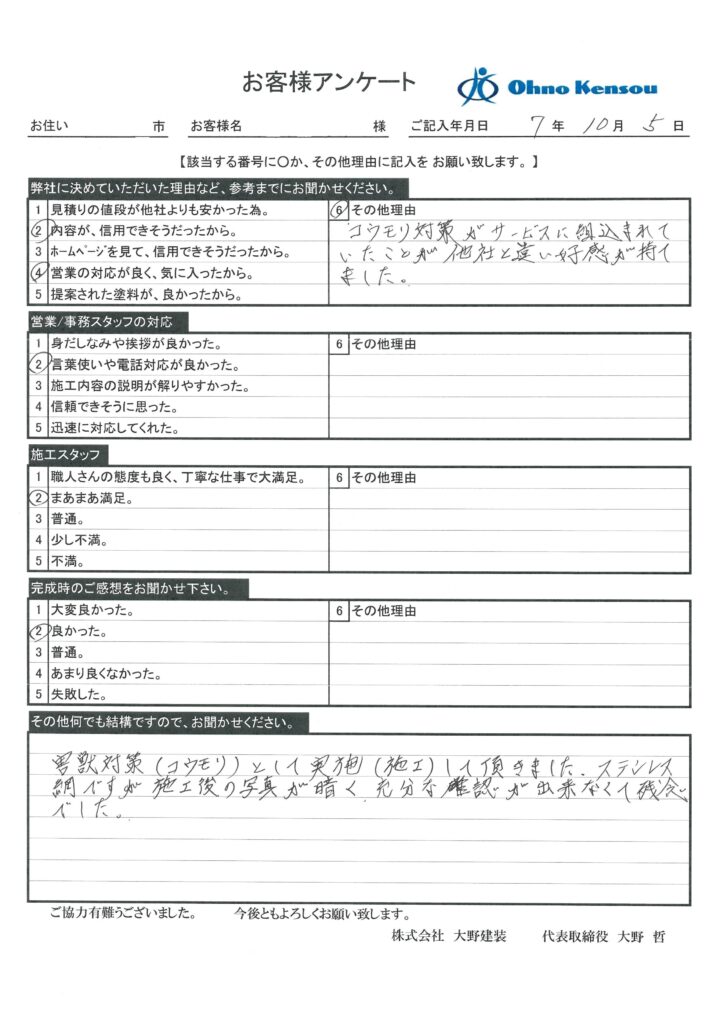 お客様アンケート Ohno Kensou
お住い 市 お客様名 様 ご記入年月日 7年 10月 5日
【該当する番号に〇か、その他理由に記入を お願い致します。】
弊社に決めていただいた理由など、参考までにお聞かせください。
1 見積りの値段が他社よりも安かった為。
2 内容が、信用できそうだったから。
3 ホームページを見て、信用できそうだったから。
4 営業の対応が良く、気に入ったから。
5 提案された塗料が、良かったから。
6 その他理由
コウモリ対策がサービスに組込まれて
いたことが他社と違い好感が持て
ました。
営業/事務スタッフの対応
1 身だしなみや挨拶が良かった。
2 言葉使いや電話対応が良かった。
3 施工内容の説明が解りやすかった。
4 信頼できそうに思った。
5 迅速に対応してくれた。
6 その他理由
施工スタッフ
1 職人さんの態度も良く、丁寧な仕事で大満足。
2 まあまあ満足。
3 普通。
4 少し不満。
5 不満。
6 その他理由
完成時のご感想をお聞かせ下さい。
1 大変良かった。
2 良かった。
3 普通。
4 あまり良くなかった。
5 失敗した。
6 その他理由
その他何でも結構ですので、お聞かせください。
害獣対策(コウモリ)として実施(施工)して頂きました。ステンレス
網ですが施工後の写真が暗く充分な確認が出来なくて残念
でした。
ご協力有難うございました。 今後ともよろしくお願い致します。
株式会社 大野建装 代表取締役 大野 哲